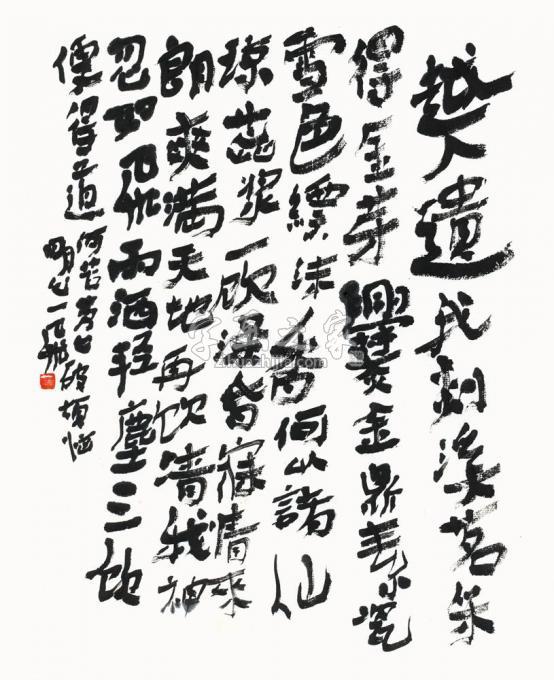 越人遺我剡溪茗采
得金芽爨金鼎素瓷
雪色縹沫香何似諸仙
琼蕊漿一飲滌昏寐情来
朗爽满天地再飲清我神
忽如飛雨洒轻塵三飲
便得道何苦心破煩惱
字画之家
zihuazhijia.com